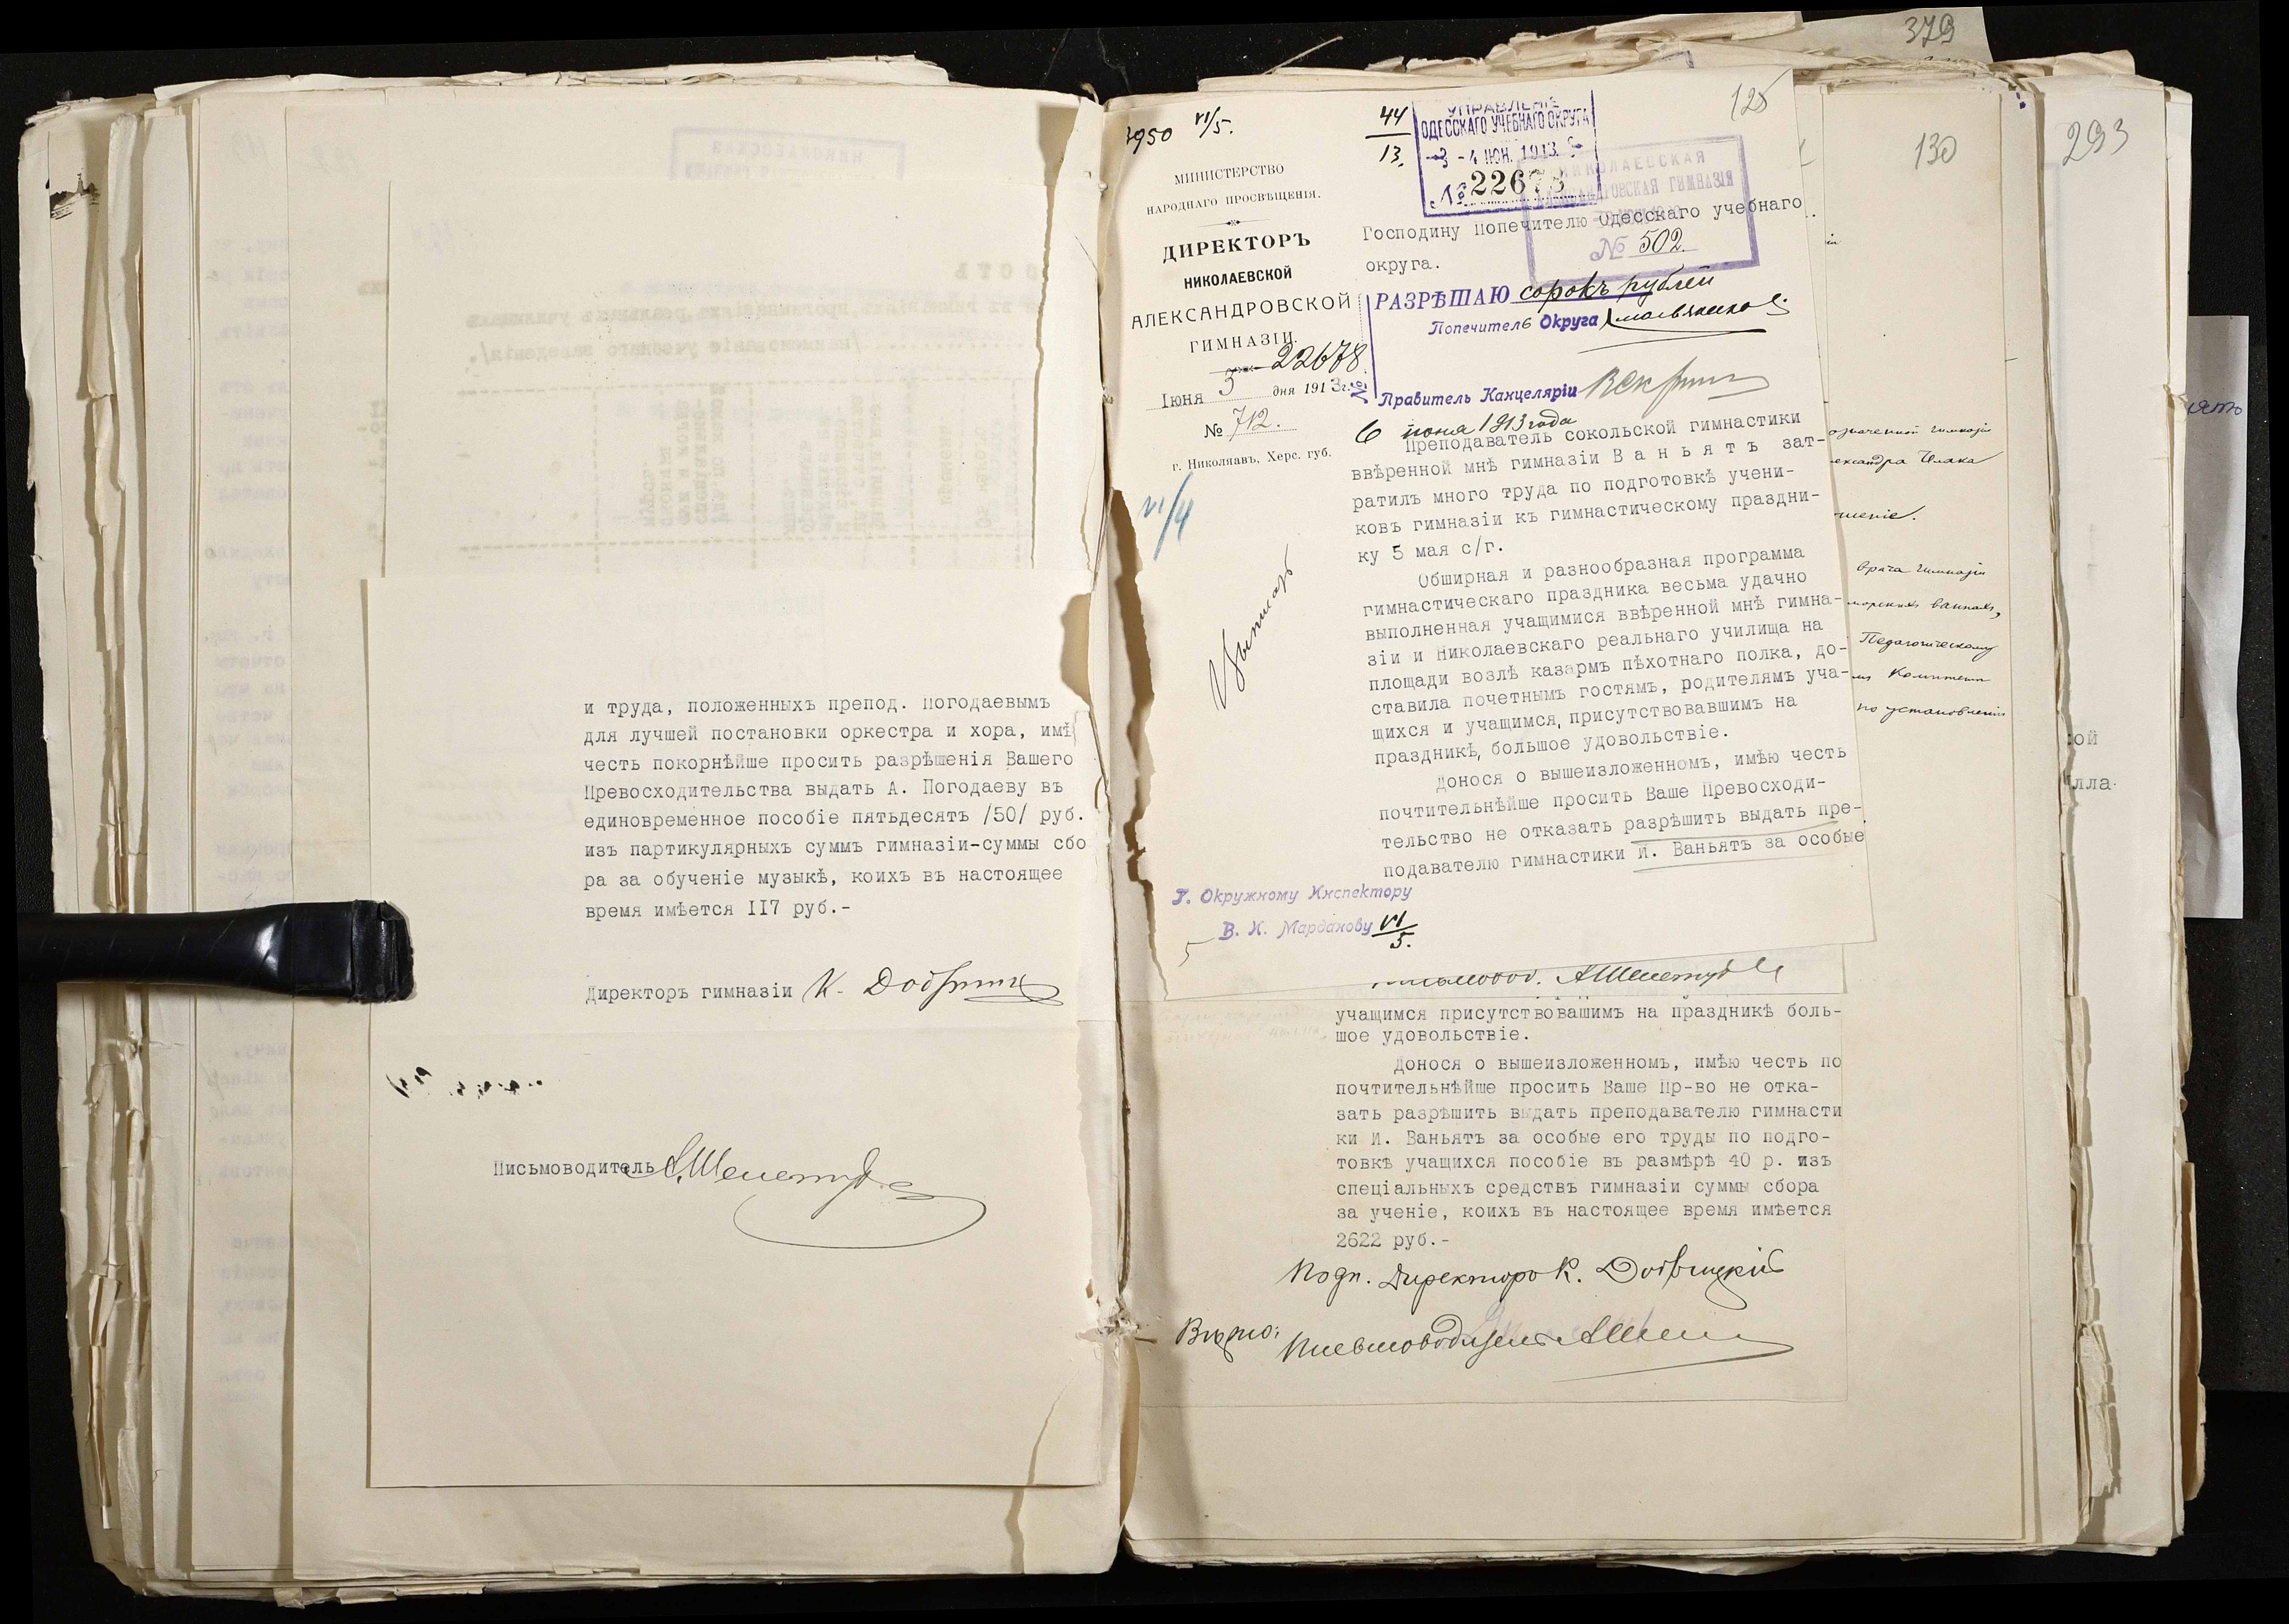 и труда, положенныхъ препод. Погодаевымъ
для лучшей постановки оркестра и хора, имѣ
честь покорнѣйше просить разрѣшенія Вашего
Превосходительства выдать А. Погодаеву въ
единовременное пособіе пятьдесятъ /50/ руб.
изъ партикулярныхъ суммъ гимназіи-суммы сбо
ра за обученіе музыкѣ, коихъ въ настоящее
время имѣется II7 руб.-
Директоръ гимназіи К.
Письмоводитель
379
125
130
293
VI/5.
44
13.
УПРАВЛЕНІЕ
ОДЕССКАГО УЧЕБНАГО ОКРУГА
- 4 ІЮН. 1913
№ 22678
НИКОЛАЕВСКАЯ
АЛЕКСАНДРОВСКАЯ ГИМНАЗІЯ
№ 502.
МИНИСТЕРСТВО
НАРОДНАГО ПРОСВѢЩЕНІЯ.
ДИРЕКТОРЪ
НИКОЛАЕВСКОЙ
АЛЕКСАНДРОВСКОЙ
ГИМНАЗІИ.
Іюня 3 дня 1913 г.
№ 712.
г. Николяавъ, Херс. губ.
VI/4
Господину Попечителю Одесскаго учебнаго
округа.
РАЗРѢШАЮ сорокъ рублей
Попечитель Округа
№ 22678
Правитель Канцеляріи
6 июня 1913 года
Преподаватель сокольской гимнастики
ввѣренной мнѣ гимназіи Ваньятъ зат-
ратилъ много труда по подготовкѣ учени-
ковъ гимназіи къ гимнастическому праздни-
ку 5 мая с/г.
Обширная и разнообразная программа
гимнастическаго праздника весьма удачно
выполненная учащимися ввѣренной мнѣ гимна-
зіи и Николаевскаго реальнаго училища на
площади возлѣ казармъ пѣхотнаго полка, до-
ставила почетнымъ гостямъ, родителямъ уча-
щихся и учащимся, присутствовавшимъ на
праздникѣ, большое удовольствіе.
Донося о вышеизложенномъ, имѣю честь
почтительнѣйше просить Ваше Превосходи-
тельство не отказать разрѣшить выдать пре-
подавателю гимнастики И. Ваньятъ за особые
Г. Окружному Инспектору
В. И. Марданову VI/5.
учащимся присутствовашимъ на праздникѣ боль-
шое удовольствіе.
Донося о вышеизложенномъ, имѣю честь по
почтительнѣйше просить Ваше Пр-во не отка-
зать разрѣшить выдать преподавателю гимнасти
ки И. Ваньятъ за особые его труды по подго-
товкѣ учащихся пособіе въ размѣрѣ 40 р. изъ
спеціальныхъ средствъ гимназіи суммы сбора
за ученіе, коихъ въ настоящее время имѣется
2622 руб.-
Подп. Директоръ К.
Вѣрно:
Письмоводитель
врача гимназіи
Педагогическому
по установленію